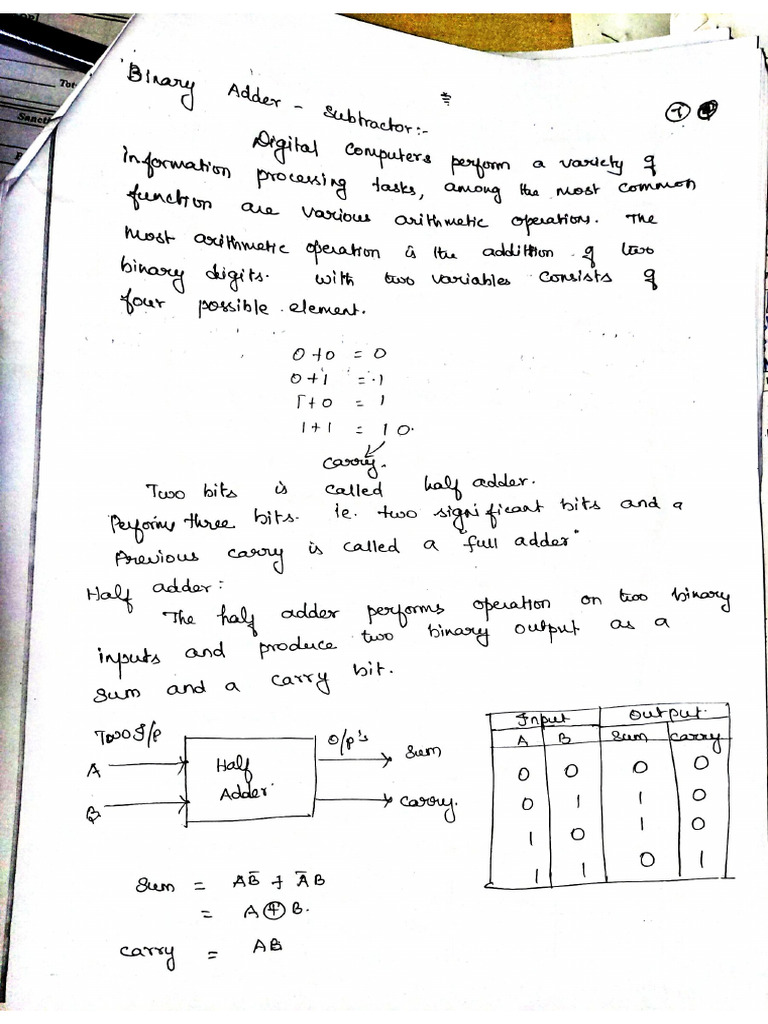 Tot
Sancti
Binary Adder - Subtractor:-
1
Digital computers perform a variety of
information processing tasks, among the most common
function are various arithmetic operation. The
most arithmetic operation is the addittion of two
binary digits. with two variables consists of
four possible element.
0+0 = 0
0+1 = 1
1+0 = 1
1+1 = 10.
carry.
Two bits is called half adder.
Performs three bits. ie. two significant bits and a
Previous carry is called a "full adder"
Half adder:
The half adder performs operation on two binary
inputs and produce two binary output as a
sum and a carry bit.
Two I/p
A
B
Half
Adder
O/p's
Sum
Carry.
Input Output.
A B Sum Carry
0 0 0 0
0 1 1 0
1 0 1 0
1 1 0 1
Sum = AB̅ + A̅B
= A⊕B.
Carry = AB